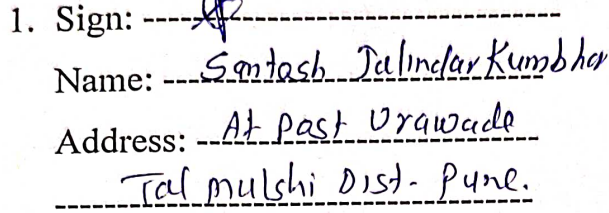 1. Sign:
Name: Santosh Jalindar Kumbhar
Address: At Post Urawade
Tal mulshi Dist- Pune.